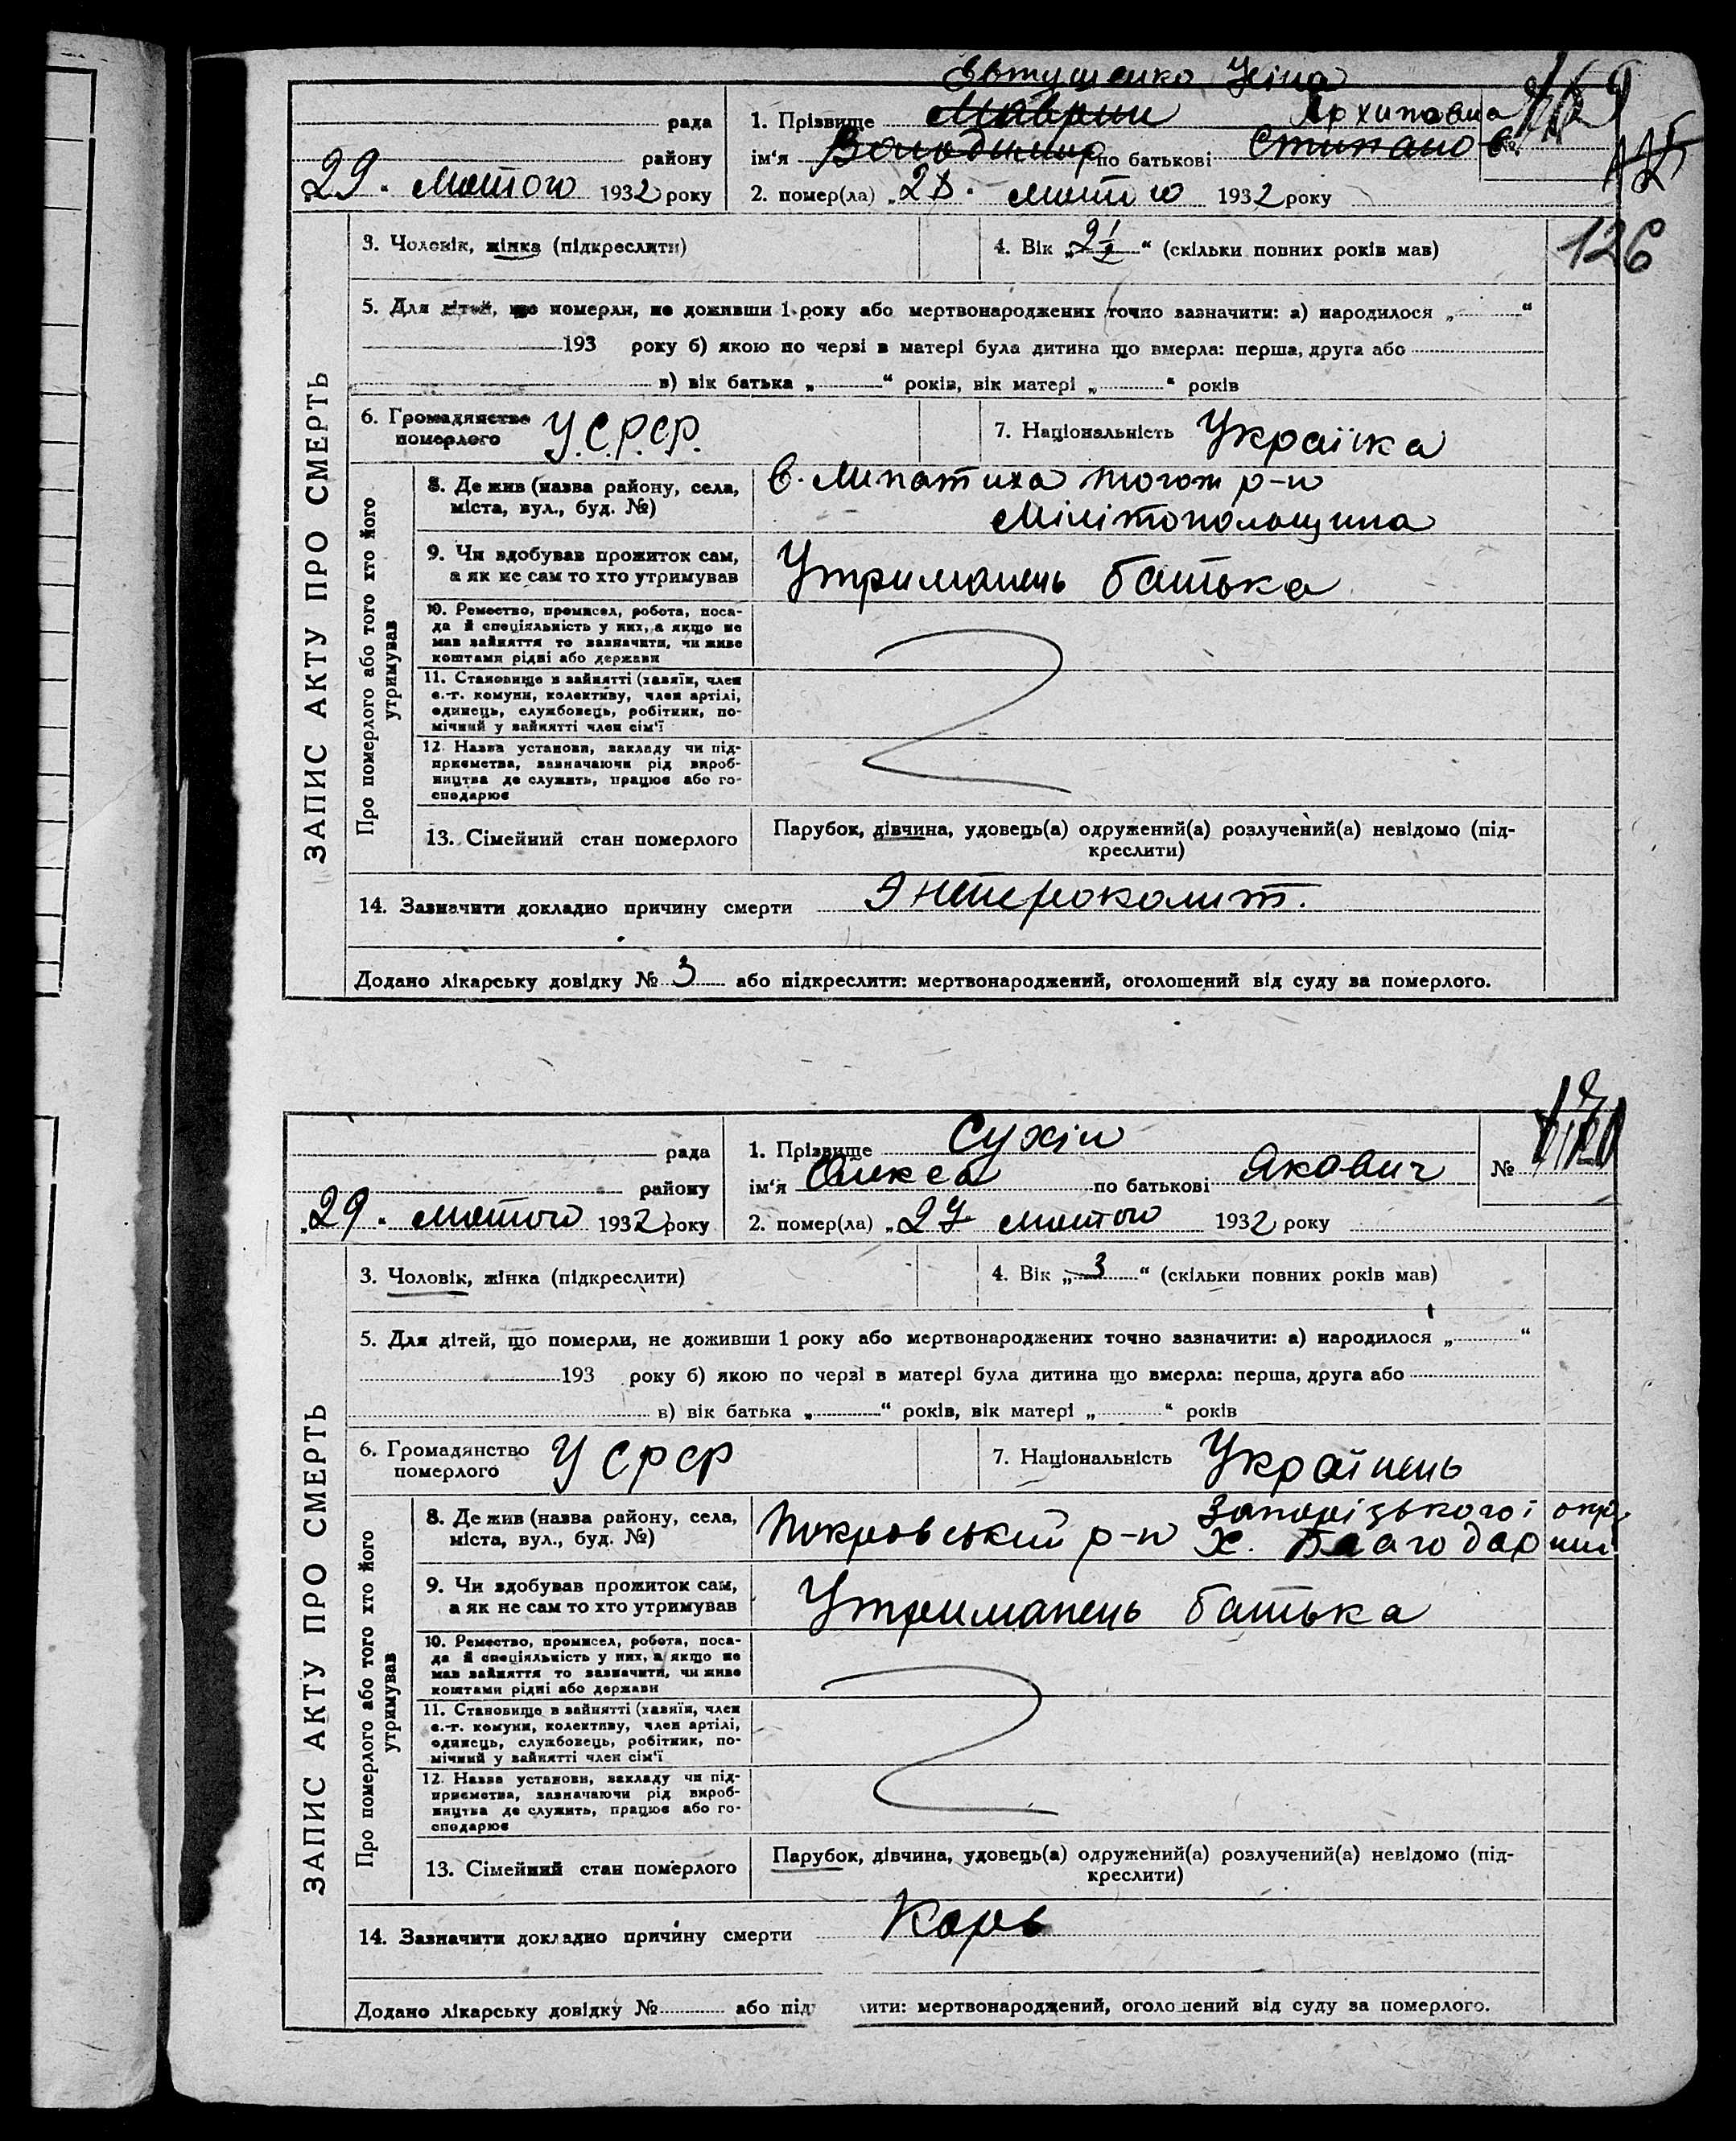 Евтушенко Ніна
рада 1. Прізвище Маврин Архиповна
району ім'я Володимир по батькові Степано в. №
29. Лютого 1932 року 2. помер(ла) „28. Лютого 1932 року
126
3. Чоловік, жінка (підкреслити) 4. Вік „2½“ (скільки повних років мав)
5. Для дітей, що померли, не доживши 1 року або мертвонароджених точно зазначити: а) народилося „ “
193 року б) якою по черзі в матері була дитина що вмерла: перша, друга або
в) вік батька „ “ років, вік матері „ “ років
6. Громадянство померлого У.С.Р.С.Р. 7. Національність Українка
ЗАПИС АКТУ ПРО СМЕРТЬ
Про померлого або того хто його утримував
8. Де жив (назва району, села, міста, вул., буд. №) р-н
Мілітопольщина
9. Чи здобував прожиток сам, а як не сам то хто утримував Утриманець батька
10. Ремество, промисел, робота, поса-
да й спеціяльність у них, а якщо не
мав зайняття то зазначити, чи живе
коштами рідні або держави
11. Становище в зайнятті (хазяїн, член
с.-г. комуни, колективу, член артілі,
одинець, службовець, робітник, по-
мічний у зайнятті член сім'ї
12. Назва установи, закладу чи під-
приємства, зазначаючи рід вироб-
ництва де служить, працює або го-
сподарює
13. Сімейний стан померлого Парубок, дівчина, удовець(а) одружений(а) розлучений(а) невідомо (під-
креслити)
14. Зазначити докладно причину смерти Энтероколит.
Додано лікарську довідку № 3 або підкреслити: мертвонароджений, оголошений від суду за померлого.
рада 1. Прізвище Сухін
району ім'я Олекса по батькові Якович №
„29. Лютого 1932 року 2. помер(ла) „27 Лютого 1932 року
3. Чоловік, жінка (підкреслити) 4. Вік „3“ (скільки повних років мав)
5. Для дітей, що померли, не доживши 1 року або мертвонароджених точно зазначити: а) народилося „ “
193 року б) якою по черзі в матері була дитина що вмерла: перша, друга або
в) вік батька „ “ років, вік матері „ “ років
6. Громадянство померлого УСРСР 7. Національність Українець
ЗАПИС АКТУ ПРО СМЕРТЬ
Про померлого або того хто його утримував
Запорізького окр.
8. Де жив (назва району, села, міста, вул., буд. №) Покровський р-н Х. Благодарний
9. Чи здобував прожиток сам, а як не сам то хто утримував Утриманець батька
10. Ремество, промисел, робота, поса-
да й спеціяльність у них, а якщо не
мав зайняття то зазначити, чи живе
коштами рідні або держави
11. Становище в зайнятті (хазяїн, член
с.-г. комуни, колективу, член артілі,
одинець, службовець, робітник, по-
мічний у зайнятті член сім'ї
12. Назва установи, закладу чи під-
приємства, зазначаючи рід вироб-
ництва де служить, працює або го-
сподарює
13. Сімейний стан померлого Парубок, дівчина, удовець(а) одружений(а) розлучений(а) невідомо (під-
креслити)
14. Зазначити докладно причину смерти Корь
Додано лікарську довідку № або під лити: мертвонароджений, оголошений від суду за померлого.